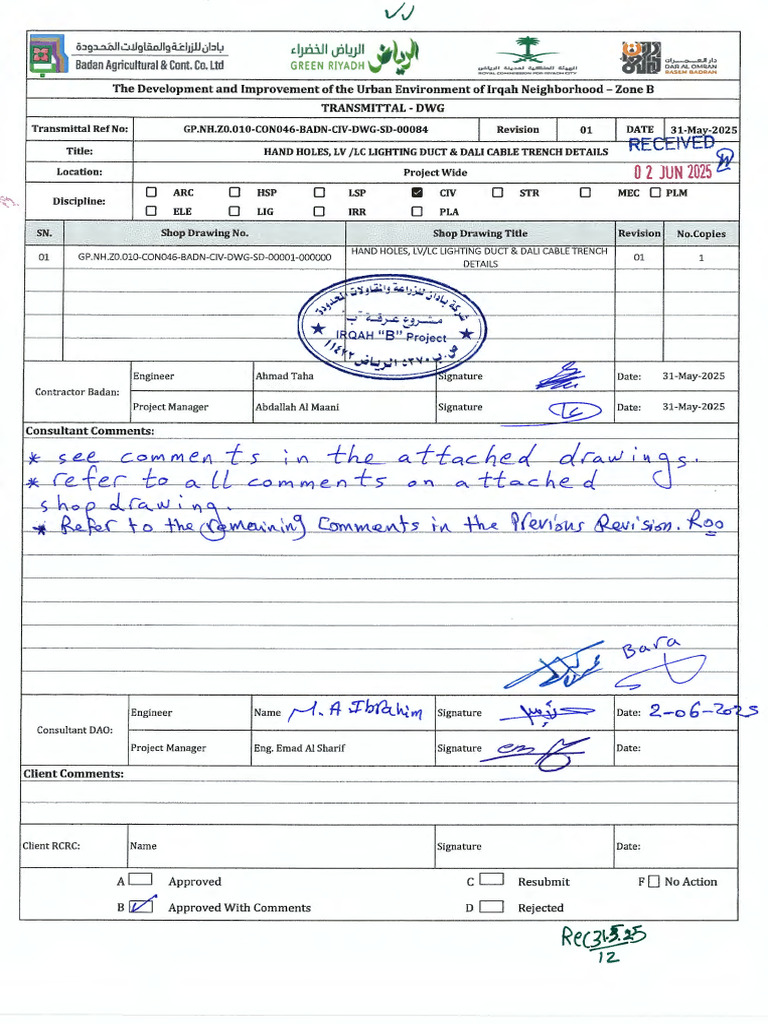 بادان للزراعة والمقاولات المحدودة
Badan Agricultural & Cont. Co. Ltd
الرياض الخضراء
GREEN RIYADH
الرياض
الهيئة الملكية لمدينة الرياض
ROYAL COMMISSION FOR RIYADH CITY
دار العمران
DAR AL OMRAN
RASEM BADRAN
The Development and Improvement of the Urban Environment of Irqah Neighborhood – Zone B
TRANSMITTAL - DWG
Transmittal Ref No: GP.NH.Z0.010-CON046-BADN-CIV-DWG-SD-00084 Revision 01 DATE 31-May-2025
RECEIVED
Title: HAND HOLES, LV /LC LIGHTING DUCT & DALI CABLE TRENCH DETAILS
Location: Project Wide
02 JUN 2025
Discipline: ARC HSP LSP CIV STR MEC PLM
ELE LIG IRR PLA
SN. Shop Drawing No. Shop Drawing Title Revision No.Copies
01 GP.NH.Z0.010-CON046-BADN-CIV-DWG-SD-00001-000000 HAND HOLES, LV/LC LIGHTING DUCT & DALI CABLE TRENCH DETAILS 01 1
شركة بادان للزراعة والمقاولات المحدودة
مشروع عرقة "ب"
IRQAH "B" Project
ص.ب ٥٣٧٠ الرياض ١١٤٢٢
Contractor Badan:
Engineer Ahmad Taha Signature Date: 31-May-2025
Project Manager Abdallah Al Maani Signature Date: 31-May-2025
Consultant Comments:
* see comments in the attached drawings.
* refer to all comments on attached
shop drawing.
* Refer to the remaining Comments in the Previous Revision. R00
Bara
Consultant DAO:
Engineer Name M. A Ibrahim Signature Date: 2-06-2025
Project Manager Eng. Emad Al Sharif Signature Date:
Client Comments:
Client RCRC: Name Signature Date:
A Approved C Resubmit F No Action
B Approved With Comments D Rejected
Rec 31.5.25
12